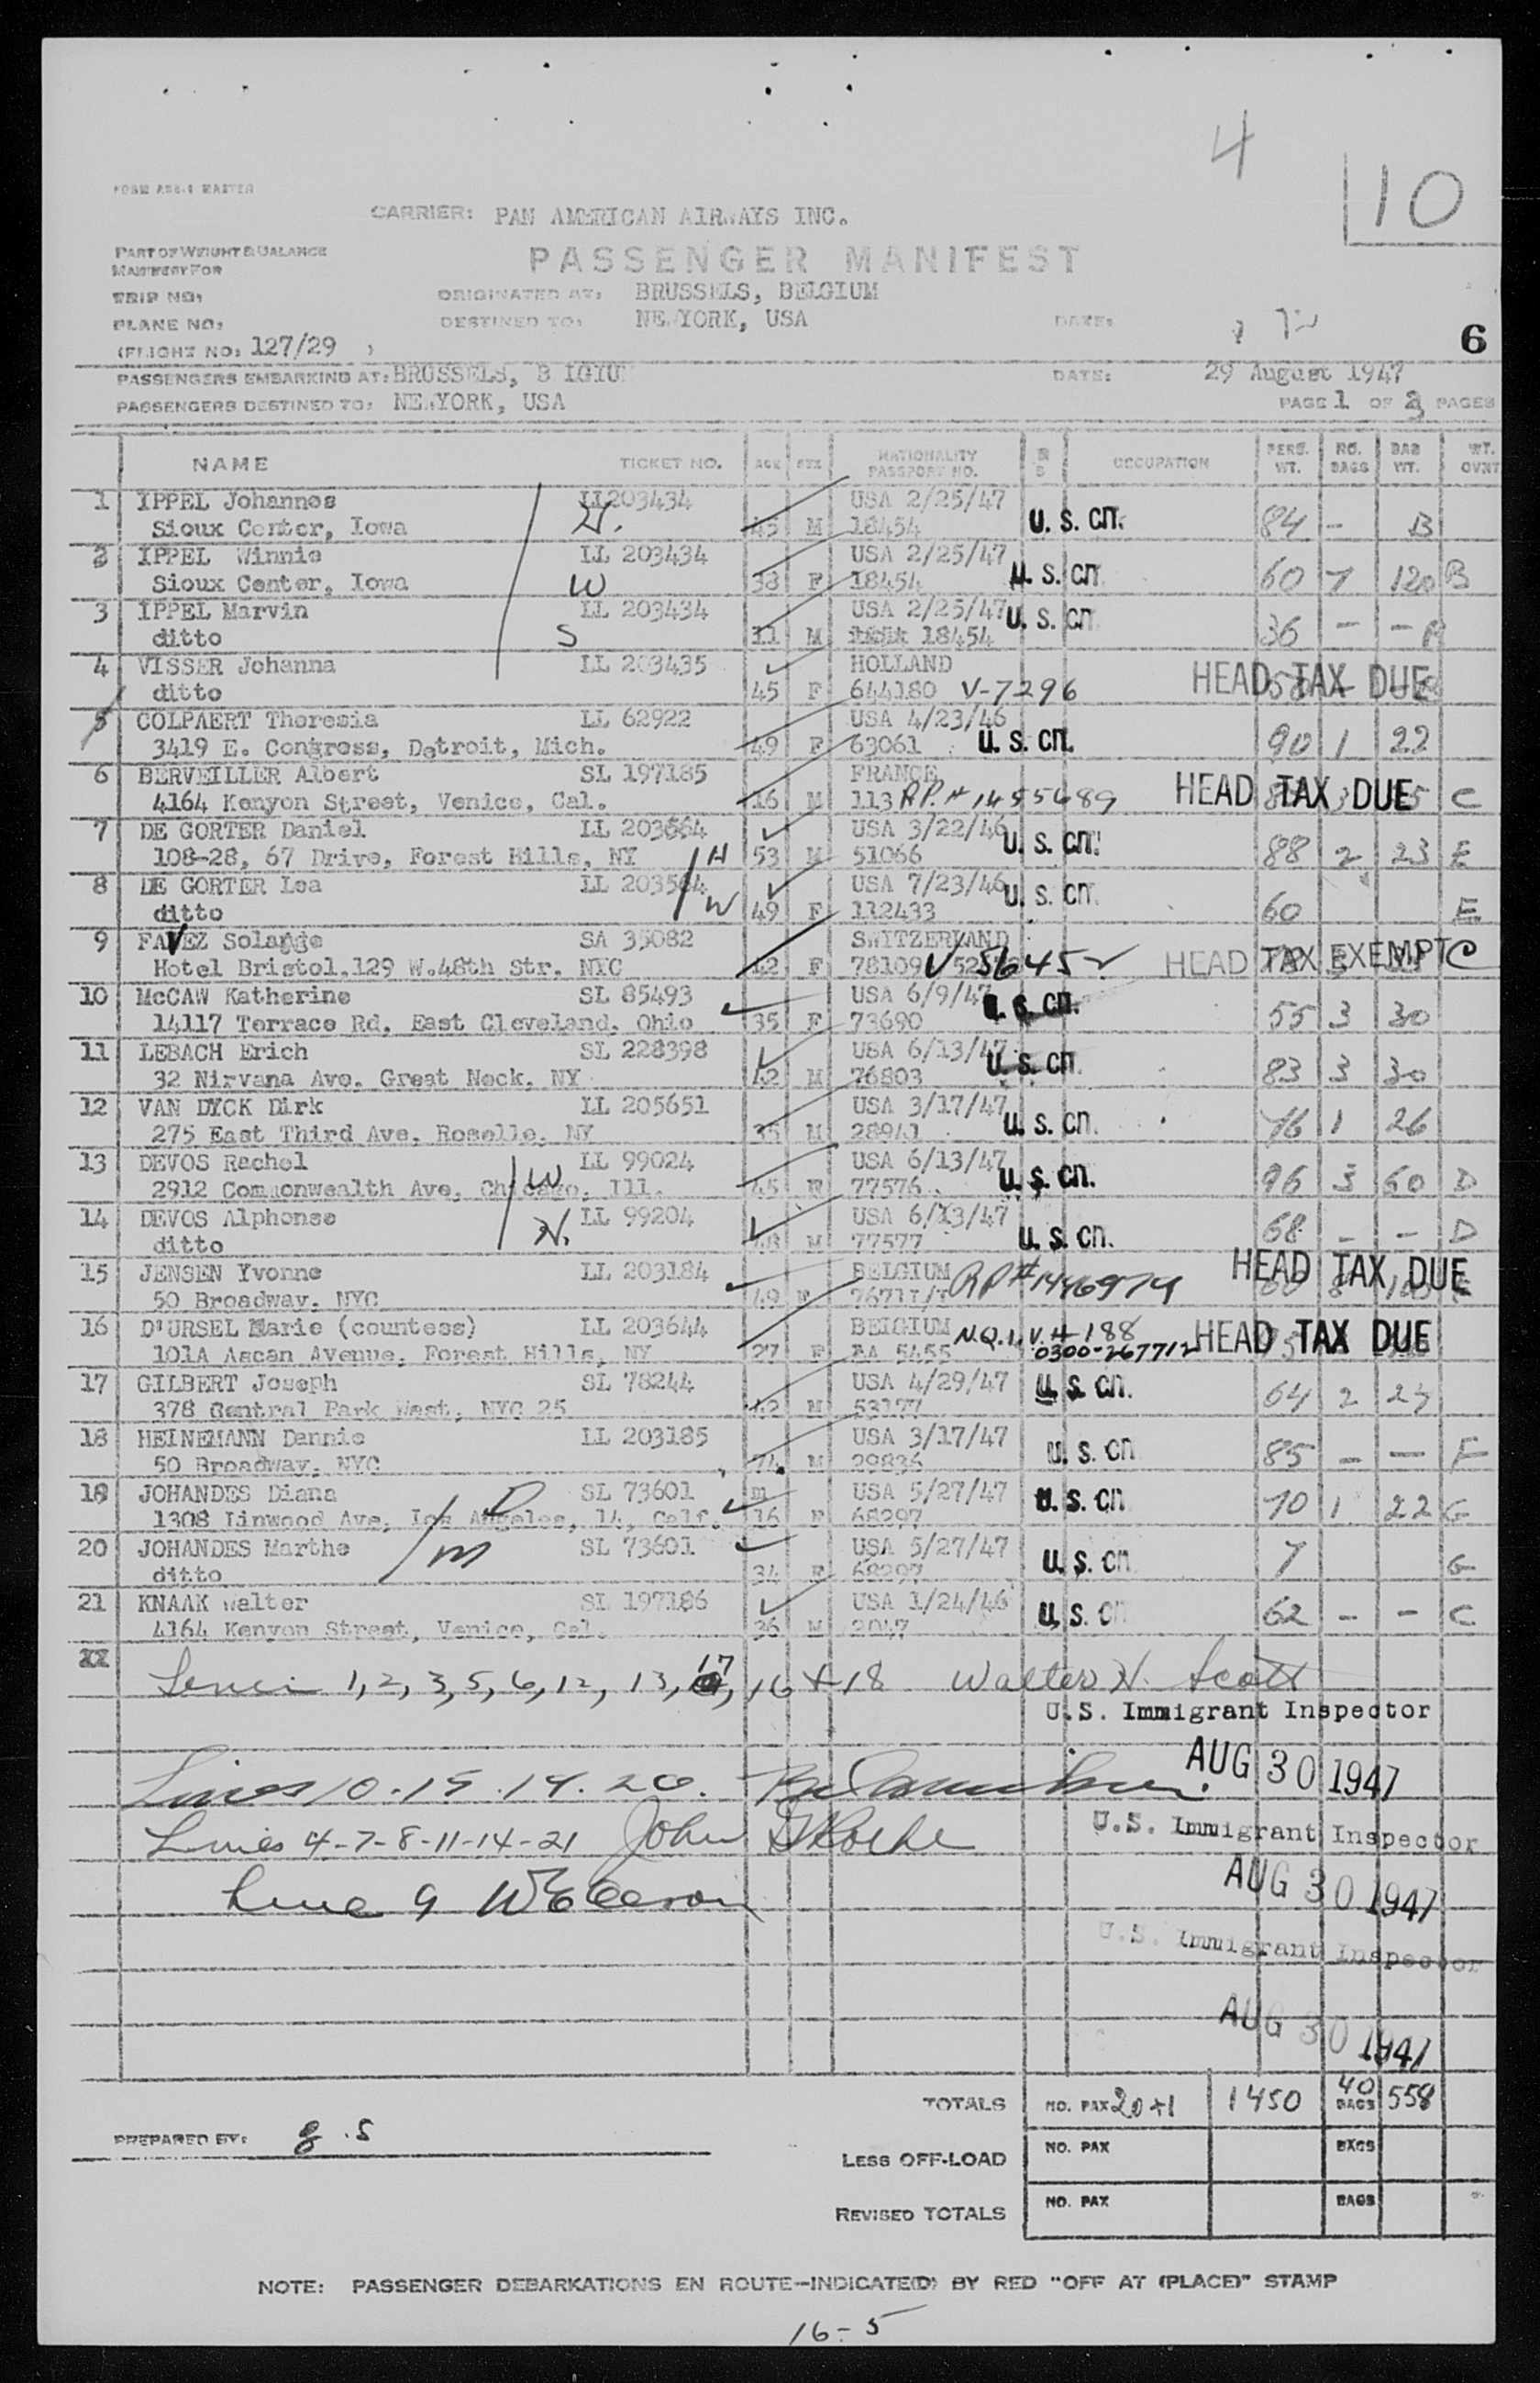 4
10
FORM
CARRIER: PAN AMERICAN AIRWAYS INC.
PART OF WEIGHT & BALANCE
MANIFEST FOR
PASSENGER MANIFEST
TRIP NO:
ORIGINATED AT: BRUSSELS, BELGIUM
PLANE NO:
DESTINED TO: NEWYORK, USA
DATE:
6
(FLIGHT NO: 127/29 )
PASSENGERS EMBARKING AT: BRUSSELS, B IGIUM
DATE: 29 August 1947
PASSENGERS DESTINED TO: NEWYORK, USA
PAGE 1 OF 3 PAGES
NAME TICKET NO. AGE SEX NATIONALITY PASSPORT NO. OCCUPATION PERS. WT. NO. BAGS BAG WT. WT. OVNT
1 IPPEL Johannes LL203434 USA 2/25/47
Sioux Center, Iowa H. 45 M 18454 U. S. CIT. 84 - B
2 IPPEL Winnie LL 203434 USA 2/25/47
Sioux Center, Iowa W 38 F 18454 U. S. CIT. 60 7 120 B
3 IPPEL Marvin LL 203434 USA 2/25/47 U. S. CIT.
ditto S 11 M 18454 36 - -
4 VISSER Johanna LL 203435 HOLLAND
ditto 45 F 644180 V-7296 HEAD TAX DUE
5 COLPAERT Theresia LL 62922 USA 4/23/46
3419 E. Congress, Detroit, Mich. 49 F 63061 U. S. CIT. 90 1 22
6 BERVEILLER Albert SL 197185 FRANCE
4164 Kenyon Street, Venice, Cal. 16 M 113 R.P.# 1455489 HEAD TAX DUE C
7 DE GORTER Daniel LL 203564 USA 3/22/46 U. S. CIT.
108-28, 67 Drive, Forest Hills, NY H 53 M 51066 88 2 23 E
8 DE GORTER Lea LL 203564 USA 7/23/46 U. S. CIT.
ditto W 49 F 112433 60 E
9 FAVEZ Solange SA 35082 SWITZERLAND
Hotel Bristol,129 W.48th Str. NYC 42 F 78109 HEAD TAX EXEMPT C
10 McCAW Katherine SL 85493 USA 6/9/47 U. S. CIT.
14117 Terrace Rd. East Cleveland. Ohio 35 F 73690 55 3 30
11 LEBACH Erich SL 228398 USA 6/13/47 U. S. CIT.
32 Nirvana Ave. Great Neck. NY 42 M 76803 83 3 30
12 VAN DYCK Dirk LL 205651 USA 3/17/47 U. S. CIT.
275 East Third Ave. Roselle. NY 35 M 28941 76 1 26
13 DEVOS Rachel LL 99024 USA 6/13/47
2912 Commonwealth Ave. Chicago, Ill. W 45 77576 U. S. CIT. 96 3 60 D
14 DEVOS Alphonse LL 99204 USA 6/13/47
ditto H. 48 M 77577 U. S. CIT. 68 - - D
15 JENSEN Yvonne LL 203184 BELGIUM RP# 1446974 HEAD TAX DUE
50 Broadway. NYC 49 F
16 D'URSEL Marie (countess) LL 203644 BELGIUM N.Q.I.V.# 188 HEAD TAX DUE
101A Ascan Avenue, Forest Hills, NY 27 F BA 5455 0300-267712
17 GILBERT Joseph SL 78244 USA 4/29/47 U. S. CIT.
378 Central Park West, NYC 25 42 M 53177 64 2 24
18 HEINEMANN Dannie LL 203185 USA 3/17/47
50 Broadway. NYC 74 M 29836 U. S. CIT. 85 - - F
19 JOHANDES Diana D SL 73601 m USA 5/27/47 U. S. CIT.
1308 Linwood Ave, Los Angeles, 14, Calf. 16 F 68297 70 1 22 G
20 JOHANDES Marthe m SL 73601 USA 5/27/47
ditto 34 F 68297 U. S. CIT. 7 G
21 KNAAK Walter SL 197186 USA 1/24/46
4164 Kenyon Street, Venice, Cal. 36 M 2047 U. S. CIT. 62 - - C
Lines 1,2,3,5,6,12,13,17,16+18 Walter H. Scott
U.S. Immigrant Inspector
AUG 30 1947
Lines 10.15.19.20.
Lines 4-7-8-11-14-21 John
U.S. Immigrant Inspector
AUG 30 1947
Line 9
U.S. Immigrant Inspector
AUG 30 1947
TOTALS NO. PAX 20+1 1450 40 BAGS 558
PREPARED BY: g.s
LESS OFF-LOAD NO. PAX BAGS
REVISED TOTALS NO. PAX BAGS
NOTE: PASSENGER DEBARKATIONS EN ROUTE-INDICATE(D) BY RED "OFF AT (PLACE)" STAMP
16-5